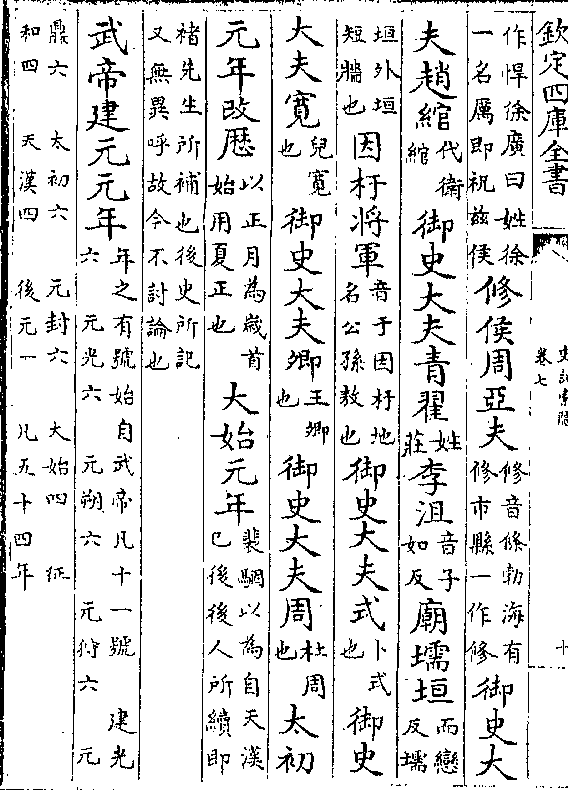 欽定四庫全書
史記索隱
卷七
十
作悍徐廣曰姓徐
一名厲即祝兹侯
修侯周亞夫
修音條勃海有
修市縣一作修
御史大
夫趙綰
代衛
綰
御史大夫青翟
姓
莊
李沮
音子
如反
廟壖垣
而戀
反壖
垣外垣
短牆也
因杅將軍
音于因杅地
名公孫敖也
御史大夫式
卜式
也
御史
大夫寛
兒寛
也
御史大夫卿
王卿
也
御史大夫周
杜周
也
太初
元年改歴
以正月為歲首
始用夏正也
大始元年
裴駰以為自天漢
已後後人所續即
褚先生所補也後史所記
又無異呼故今不討論也
武帝建元元年
年之有號始自武帝凡十一號 建光
六 元光六 元朔六 元狩六 元
鼎六 太初六 元封六 大始四 征
和四 天漢四 後元一 凡五十四年